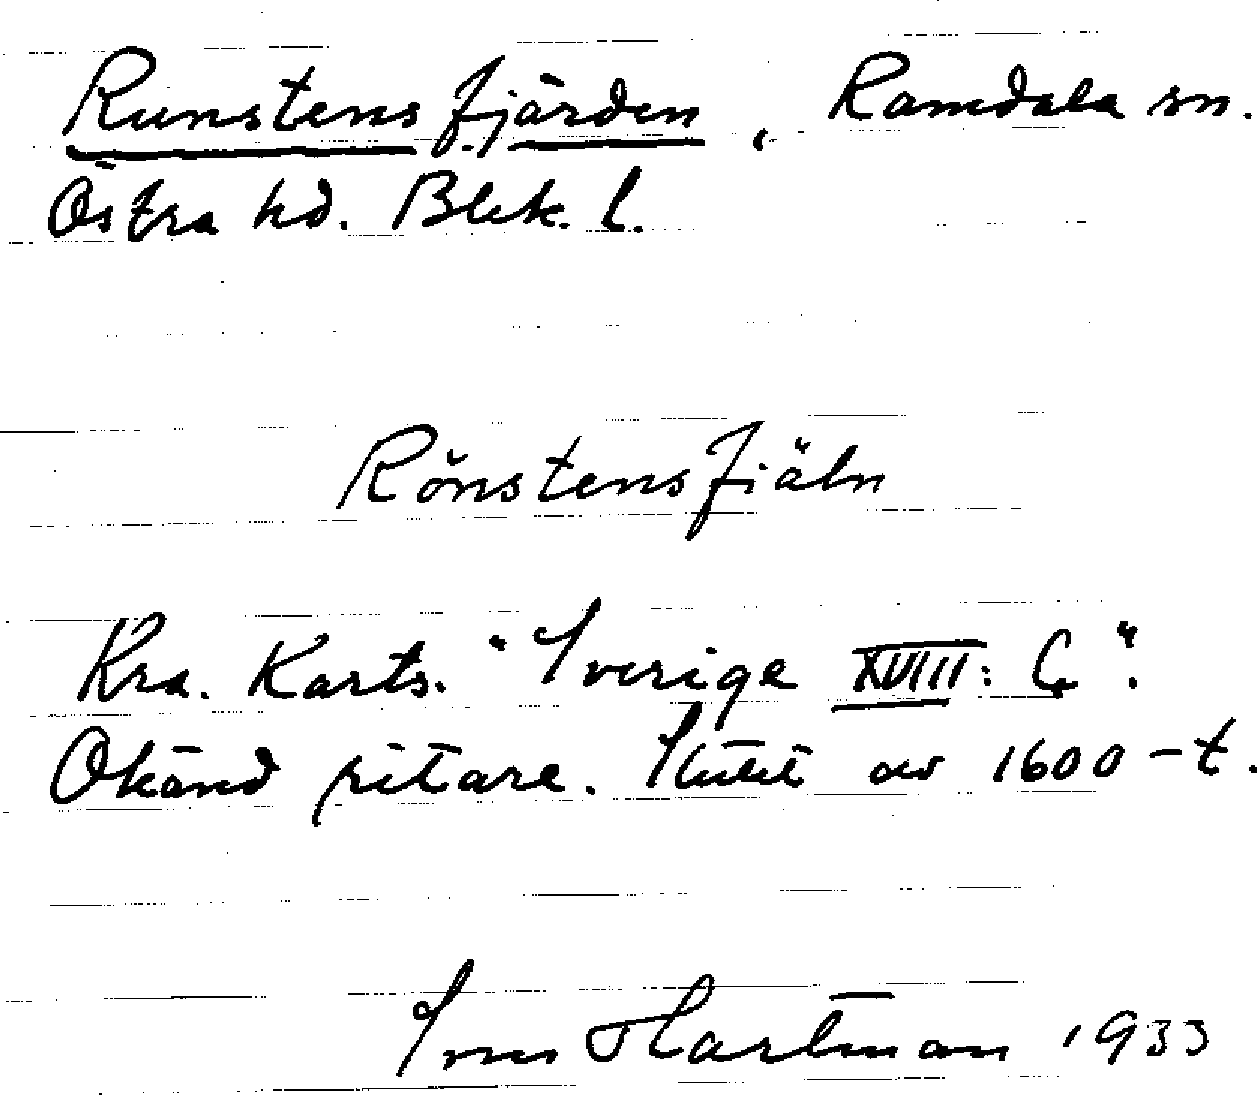 Runstensfjärden, Ramdala sn.
Östra hd. Blek. l.
Rönstensfiäln
Kra. Karts. "Sverige XVIII: C".
Okänd ritare. Slutet av 1600-t.
Hartman 1933